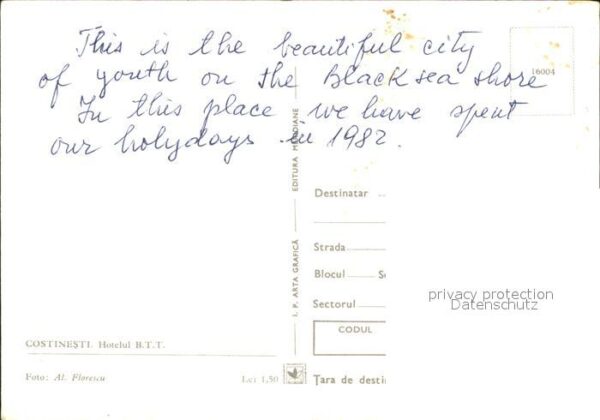 This is the beautiful city
of youth on the Black sea shore
In this place we have spent
our holydays in 1982.
16004
EDITURA MERIDIANE
I. P. ARTA GRAFICĂ
Destinatar
Strada
Blocul
Sectorul
CODUL
Țara de desti
privacy protection
Datenschutz
COSTINEȘTI. Hotelul B.T.T.
Foto: Al. Florescu
Lei 1,50